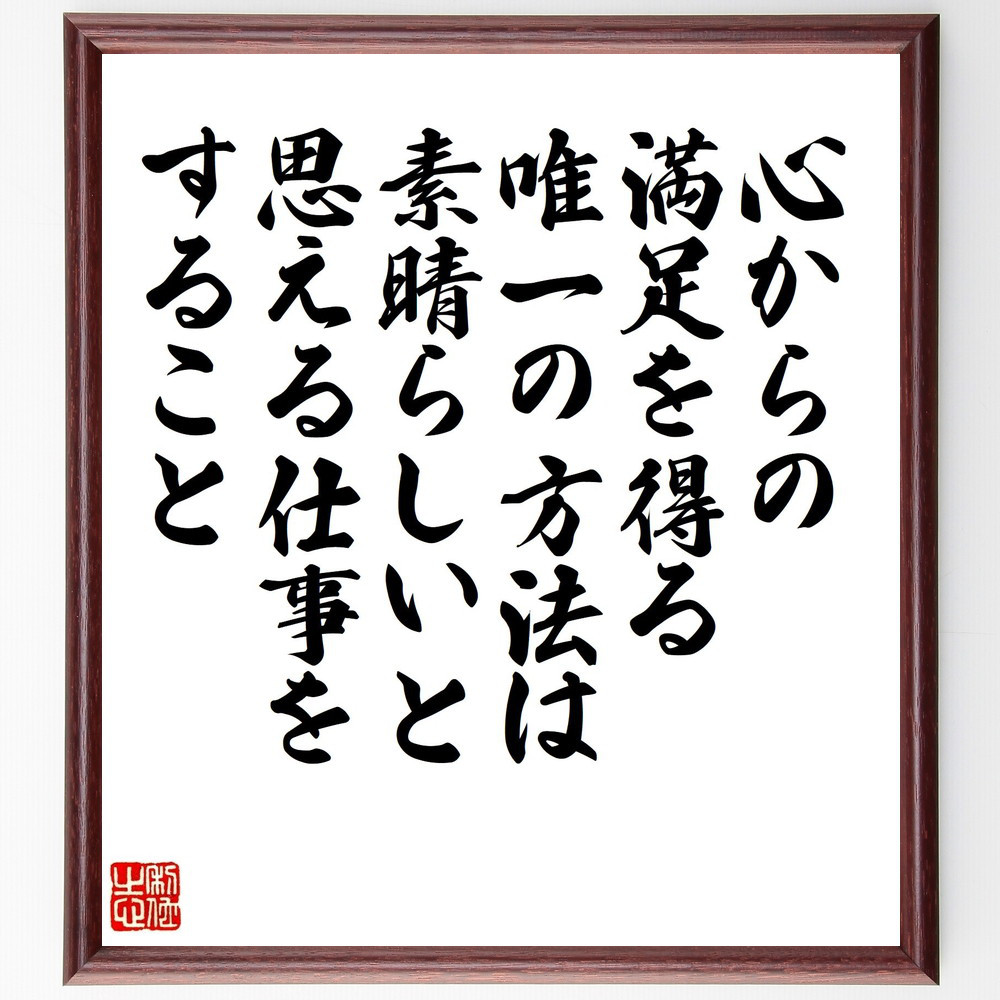 心からの
満足を得る
唯一の方法は
素晴らしいと
思える仕事を
すること